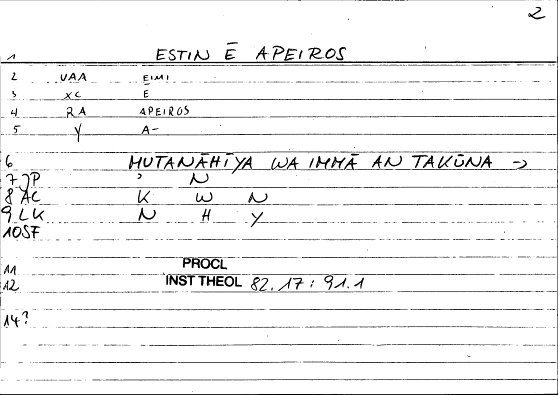 2
1 ESTIN Ē APEIROS
2 VAA EIMI
3 XC E
4 RA APEIROS
5 Y A-
6 MUTANĀHĪYA WA IMMĀ AN TAKŪNA →
7 JP ʾ N
8 AC K W N
9 LK N H Y
10 SF
11 PROCL
12 INST THEOL 82.17 : 91.1
14?